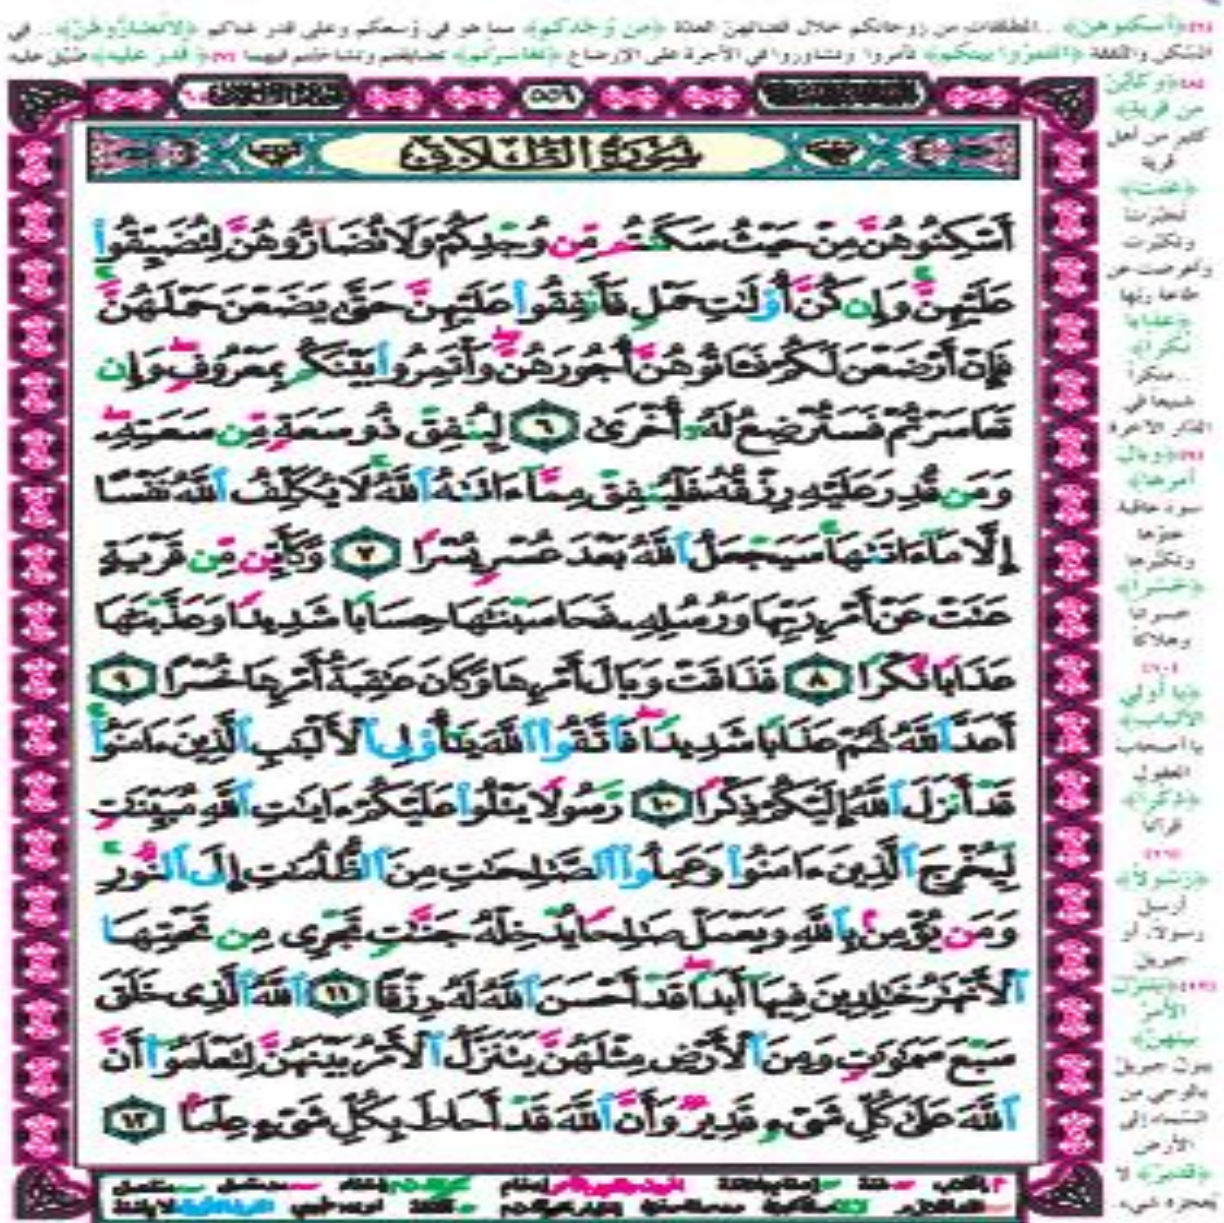 «أسكنوهن» ..المطلقات من زوجاتكم خلال قضائهن العدة «من وجدكم» مما هو في وُسعكم وعلى قدر غناكم «لا تضاروهن».. في
السكن والنفقة «ائتمروا بينكم» تآمروا وتشاوروا في الأجرة على الإرضاع «تعاسرتم» تضايقتم وتشاححتم فيهما «قدر عليه» ضيّق عليه
٥٥٩
سُورَةُ الطَّلَاقِ
أَسْكِنُوهُنَّ مِنْ حَيْثُ سَكَنتُم مِّن وُجْدِكُمْ وَلَا تُضَارُّوهُنَّ لِتُضَيِّقُوا
عَلَيْهِنَّ وَإِن كُنَّ أُوْلَٰتِ حَمْلٍ فَأَنفِقُوا عَلَيْهِنَّ حَتَّىٰ يَضَعْنَ حَمْلَهُنَّ
فَإِنْ أَرْضَعْنَ لَكُمْ فَـَٔاتُوهُنَّ أُجُورَهُنَّ وَأْتَمِرُوا بَيْنَكُم بِمَعْرُوفٍ وَإِن
تَعَاسَرْتُمْ فَسَتُرْضِعُ لَهُۥ أُخْرَىٰ ٦ لِيُنفِقْ ذُو سَعَةٍ مِّن سَعَتِهِۦ
وَمَن قُدِرَ عَلَيْهِ رِزْقُهُۥ فَلْيُنفِقْ مِمَّآ ءَاتَىٰهُ ٱللَّهُ لَا يُكَلِّفُ ٱللَّهُ نَفْسًا
إِلَّا مَآ ءَاتَىٰهَا سَيَجْعَلُ ٱللَّهُ بَعْدَ عُسْرٍ يُسْرًا ٧ وَكَأَيِّن مِّن قَرْيَةٍ
عَتَتْ عَنْ أَمْرِ رَبِّهَا وَرُسُلِهِۦ فَحَاسَبْنَٰهَا حِسَابًا شَدِيدًا وَعَذَّبْنَٰهَا
عَذَابًا نُّكْرًا ٨ فَذَاقَتْ وَبَالَ أَمْرِهَا وَكَانَ عَٰقِبَةُ أَمْرِهَا خُسْرًا ٩
أَعَدَّ ٱللَّهُ لَهُمْ عَذَابًا شَدِيدًا فَٱتَّقُوا ٱللَّهَ يَٰٓأُوْلِى ٱلْأَلْبَٰبِ ٱلَّذِينَ ءَامَنُوا
قَدْ أَنزَلَ ٱللَّهُ إِلَيْكُمْ ذِكْرًا ١٠ رَّسُولًا يَتْلُوا عَلَيْكُمْ ءَايَٰتِ ٱللَّهِ مُبَيِّنَٰتٍ
لِّيُخْرِجَ ٱلَّذِينَ ءَامَنُوا وَعَمِلُوا ٱلصَّٰلِحَٰتِ مِنَ ٱلظُّلُمَٰتِ إِلَى ٱلنُّورِ
وَمَن يُؤْمِنۢ بِٱللَّهِ وَيَعْمَلْ صَٰلِحًا يُدْخِلْهُ جَنَّٰتٍ تَجْرِى مِن تَحْتِهَا
ٱلْأَنْهَٰرُ خَٰلِدِينَ فِيهَآ أَبَدًا قَدْ أَحْسَنَ ٱللَّهُ لَهُۥ رِزْقًا ١١ ٱللَّهُ ٱلَّذِى خَلَقَ
سَبْعَ سَمَٰوَٰتٍ وَمِنَ ٱلْأَرْضِ مِثْلَهُنَّ يَتَنَزَّلُ ٱلْأَمْرُ بَيْنَهُنَّ لِتَعْلَمُوٓا أَنَّ
ٱللَّهَ عَلَىٰ كُلِّ شَىْءٍ قَدِيرٌ وَأَنَّ ٱللَّهَ قَدْ أَحَاطَ بِكُلِّ شَىْءٍ عِلْمًا ١٢
«وكأين
من قرية»
كثير من أهل
قرية
«عتت»
تجبّرت
وتكبّرت
وأعرضت عن
طاعة ربّها
«عذابا
نكرا»
..منكرا
شنيعا في
الدار الآخرة
«وبال
أمرها»
سوء عاقبة
عتوّها
وتكبّرها
«خسرا»
خسرانا
وهلاكا
«يا أولي
الألباب»
يا أصحاب
العقول
«ذكرا»
قرآنا
«رسولا»
أرسل
رسولا، أو
جبريل
«يتنزل
الأمر
بينهن»
ينزل جبريل
بالوحي من
السماء إلى
الأرض
«قدير» لا
يعجزه شيء.